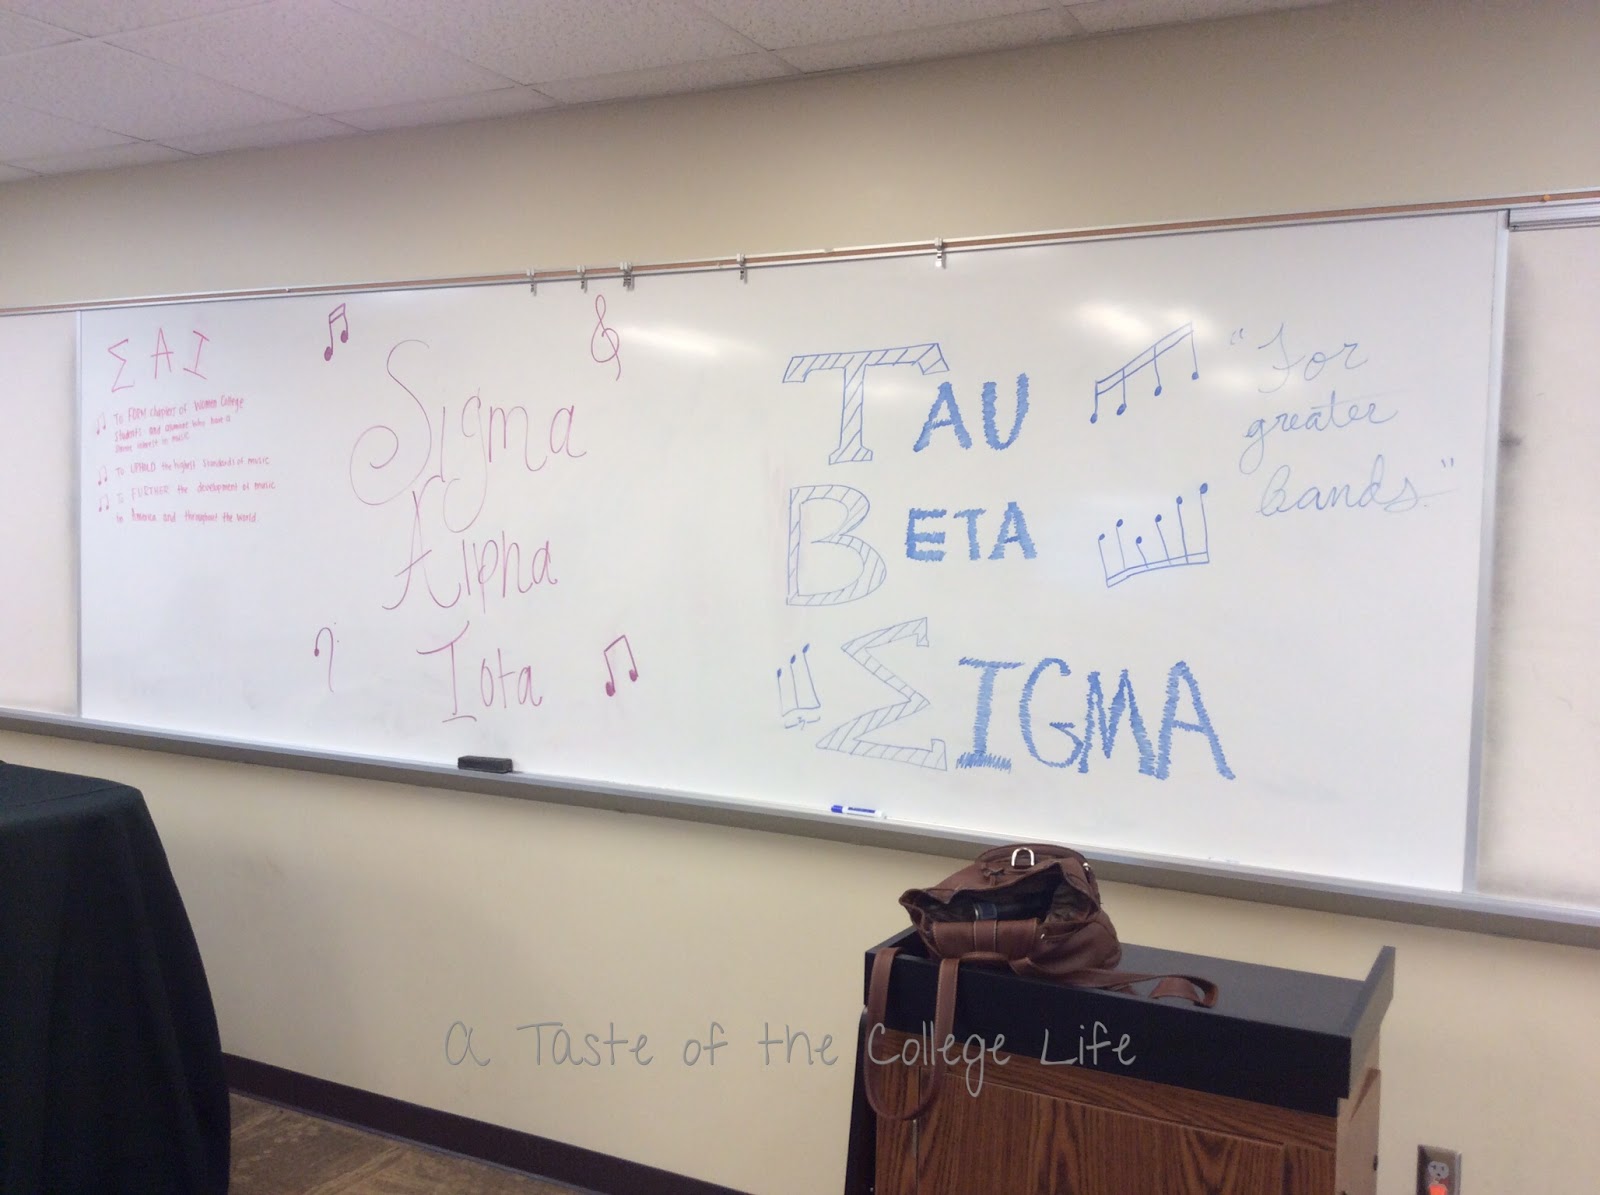 Σ A I
To FORM chapters of Women College
Students and women who have a
sincere interest in music
To UPHOLD the highest standards of music
To FURTHER the development of music
in America and throughout the world.
Sigma
Alpha
Iota
TAU
BETA
ΣIGMA
"For
greater
bands."
A Taste of the College Life